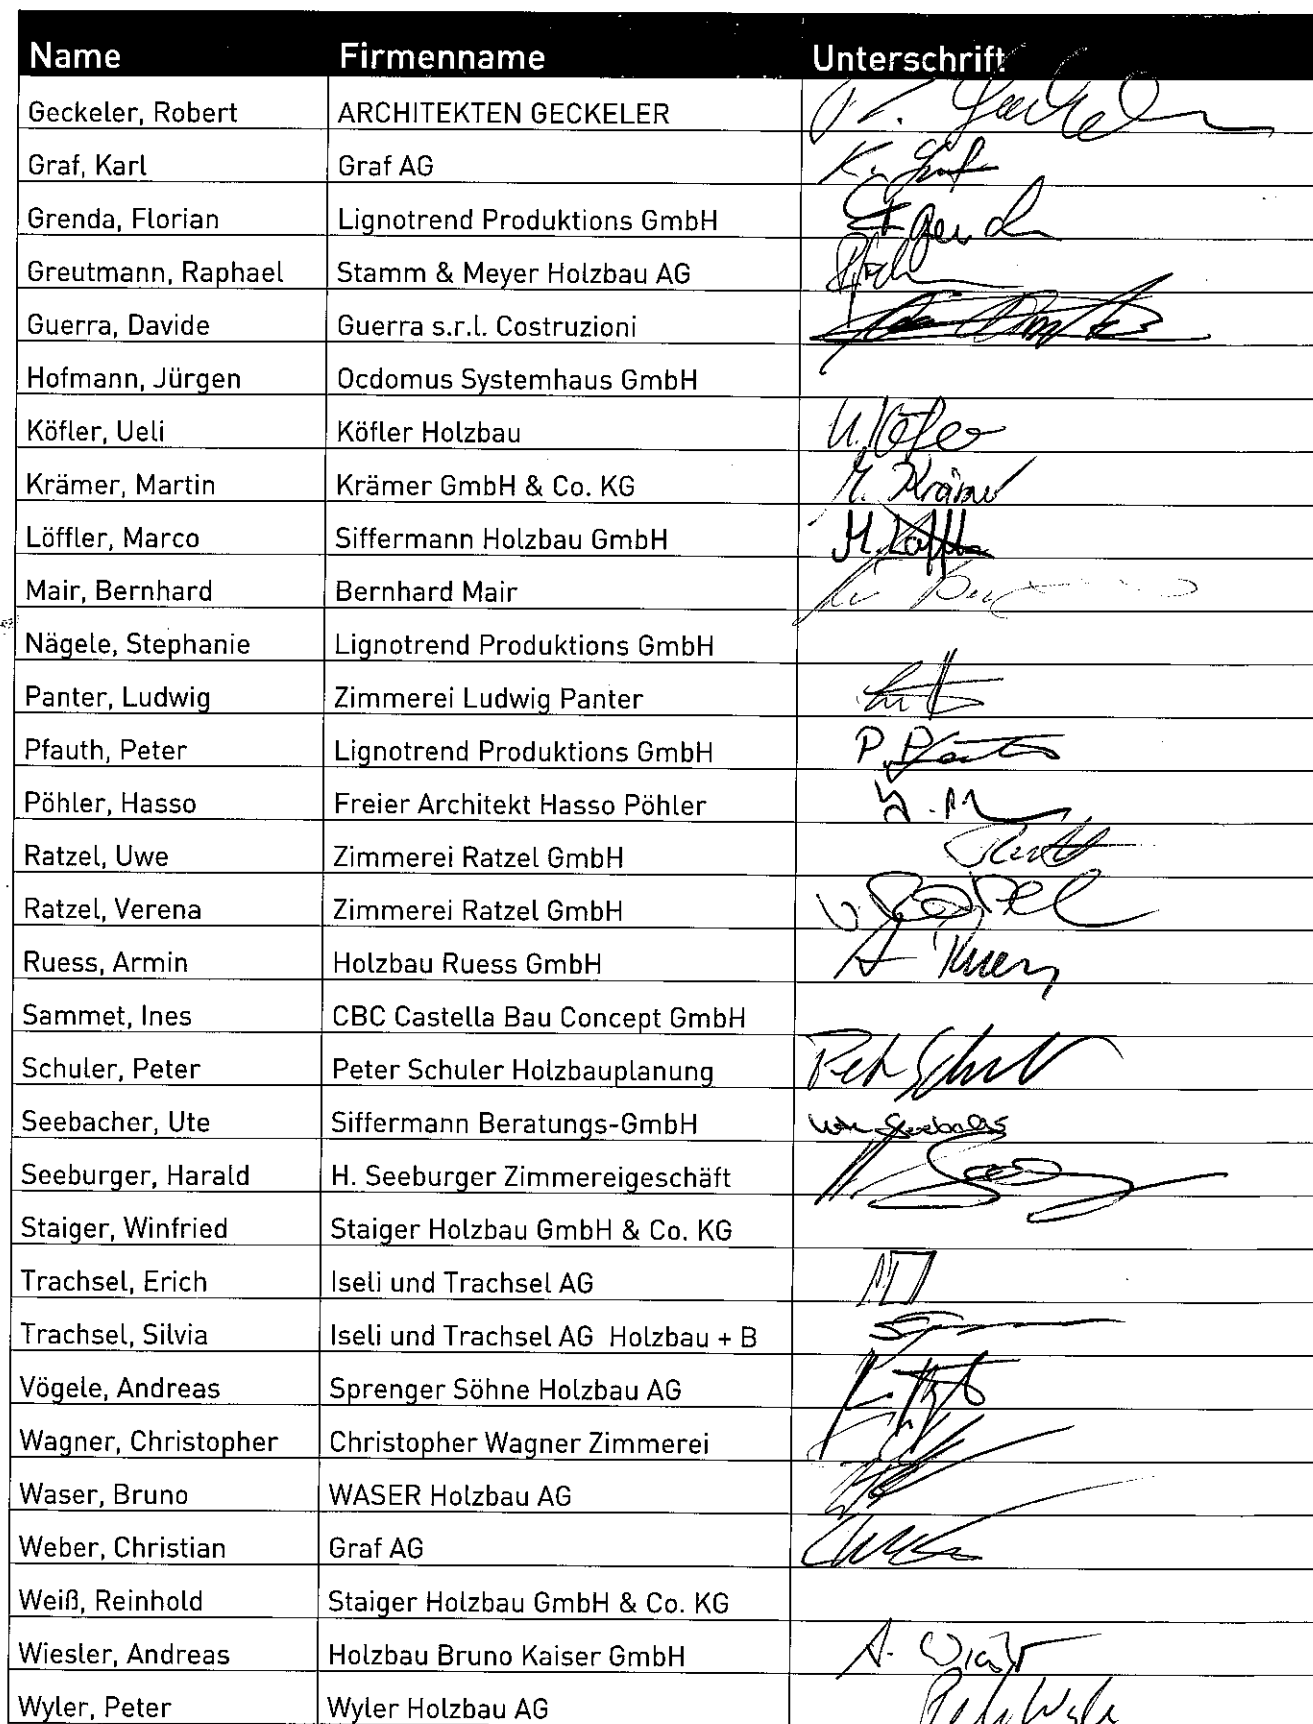 Name Firmenname Unterschrift
Geckeler, Robert ARCHITEKTEN GECKELER
Graf, Karl Graf AG K. Graf
Grenda, Florian Lignotrend Produktions GmbH
Greutmann, Raphael Stamm & Meyer Holzbau AG
Guerra, Davide Guerra s.r.l. Costruzioni
Hofmann, Jürgen Ocdomus Systemhaus GmbH
Köfler, Ueli Köfler Holzbau U. Köfler
Krämer, Martin Krämer GmbH & Co. KG M. Krämer
Löffler, Marco Siffermann Holzbau GmbH
Mair, Bernhard Bernhard Mair
Nägele, Stephanie Lignotrend Produktions GmbH
Panter, Ludwig Zimmerei Ludwig Panter
Pfauth, Peter Lignotrend Produktions GmbH P. Pfauth
Pöhler, Hasso Freier Architekt Hasso Pöhler
Ratzel, Uwe Zimmerei Ratzel GmbH
Ratzel, Verena Zimmerei Ratzel GmbH
Ruess, Armin Holzbau Ruess GmbH
Sammet, Ines CBC Castella Bau Concept GmbH
Schuler, Peter Peter Schuler Holzbauplanung
Seebacher, Ute Siffermann Beratungs-GmbH
Seeburger, Harald H. Seeburger Zimmereigeschäft
Staiger, Winfried Staiger Holzbau GmbH & Co. KG
Trachsel, Erich Iseli und Trachsel AG
Trachsel, Silvia Iseli und Trachsel AG Holzbau + B
Vögele, Andreas Sprenger Söhne Holzbau AG
Wagner, Christopher Christopher Wagner Zimmerei
Waser, Bruno WASER Holzbau AG
Weber, Christian Graf AG
Weiß, Reinhold Staiger Holzbau GmbH & Co. KG
Wiesler, Andreas Holzbau Bruno Kaiser GmbH
Wyler, Peter Wyler Holzbau AG